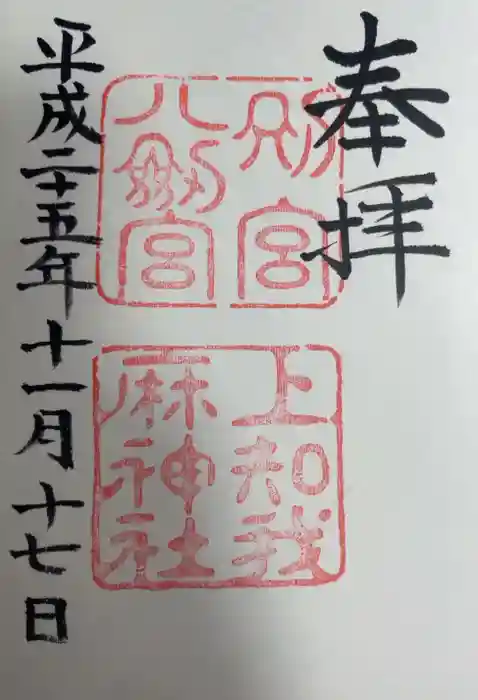 奉拝
別宮
八剱宮
上知我
麻神社
平成二十五年十一月十七日